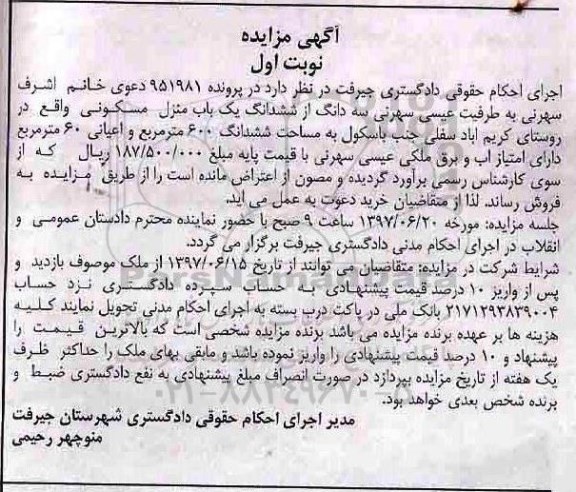 آگهی مزایده
نوبت اول
اجرای احکام حقوقی دادگستری جیرفت در نظر دارد در پرونده ۹۵۱۹۸۱ دعوی خانم اشرف
سهرنی به طرفیت عیسی سهرنی سه دانگ از ششدانگ یک باب منزل مسکونی واقع در
روستای کریم اباد سفلی جنب باسکول به مساحت ششدانگ ۶۰۰ مترمربع و اعیانی ۶۰ مترمربع
دارای امتیاز اب و برق ملکی عیسی سهرنی با قیمت پایه مبلغ ۱۸۷/۵۰۰/۰۰۰ ریال که از
سوی کارشناس رسمی براورد گردیده و مصون از اعتراض مانده است را از طریق مزایده به
فروش رساند. لذا از متقاضیان خرید دعوت به عمل می آید.
جلسه مزایده: مورخه ۱۳۹۷/۰۶/۲۰ ساعت ۹ صبح با حضور نماینده محترم دادستان عمومی و
انقلاب در اجرای احکام مدنی دادگستری جیرفت برگزار می گردد.
شرایط شرکت در مزایده: متقاضیان می توانند از تاریخ ۱۳۹۷/۰۶/۱۵ از ملک موصوف بازدید و
پس از واریز ۱۰ درصد قیمت پیشنهادی به حساب سپرده دادگستری نزد حساب
۲۱۷۱۲۹۳۸۳۹۰۰۴ بانک ملی در پاکت درب بسته به اجرای احکام مدنی تحویل نمایند کلیه
هزینه ها بر عهده برنده مزایده می باشد برنده مزایده شخصی است که بالاترین قیمت را
پیشنهاد و ۱۰ درصد قیمت پیشنهادی را واریز نموده باشد و مابقی بهای ملک را حداکثر ظرف
یک هفته از تاریخ مزایده بپردازد در صورت انصراف مبلغ پیشنهادی به نفع دادگستری ضبط و
برنده شخص بعدی خواهد بود.
مدیر اجرای احکام حقوقی دادگستری شهرستان جیرفت
منوچهر رحیمی